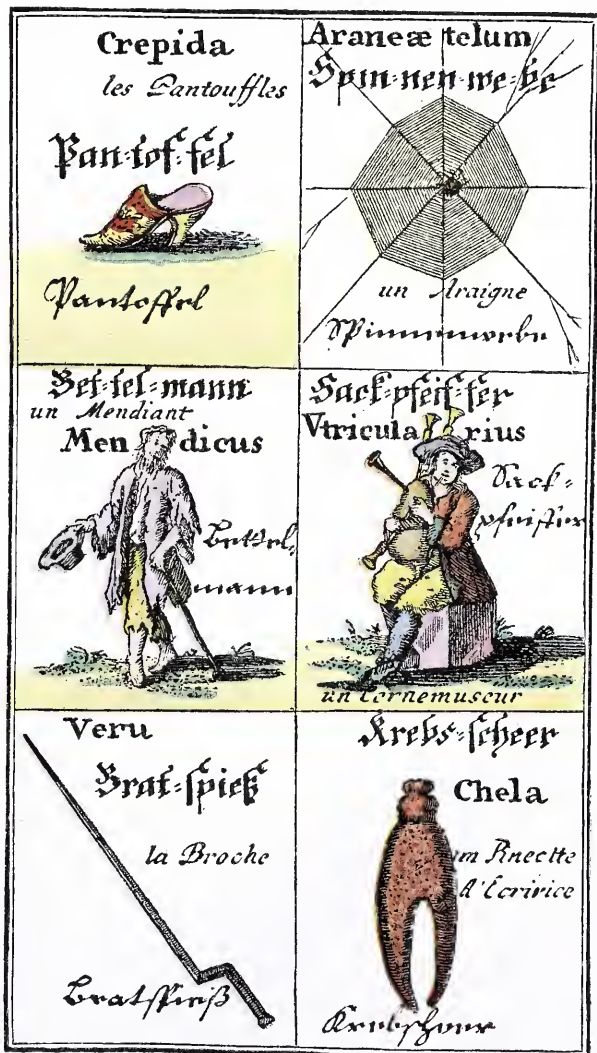 Crepida
les Pantouffles
Pan-tof-fel
Pantoffel
Araneæ telum
Spin-nen-we-be
un Araigne
Spinnenwebe
Bet-tel-mann
un Mendiant
Men dicus
Bettel-
mann
Sack-pfeif-fer
Vtricula rius
Sack-
pfeiffer
un Cornemuseur
Veru
Brat-spieß
la Broche
Bratspieß
Krebs-scheer
Chela
un Pinectte
d'Ecririce
Krebsscheer